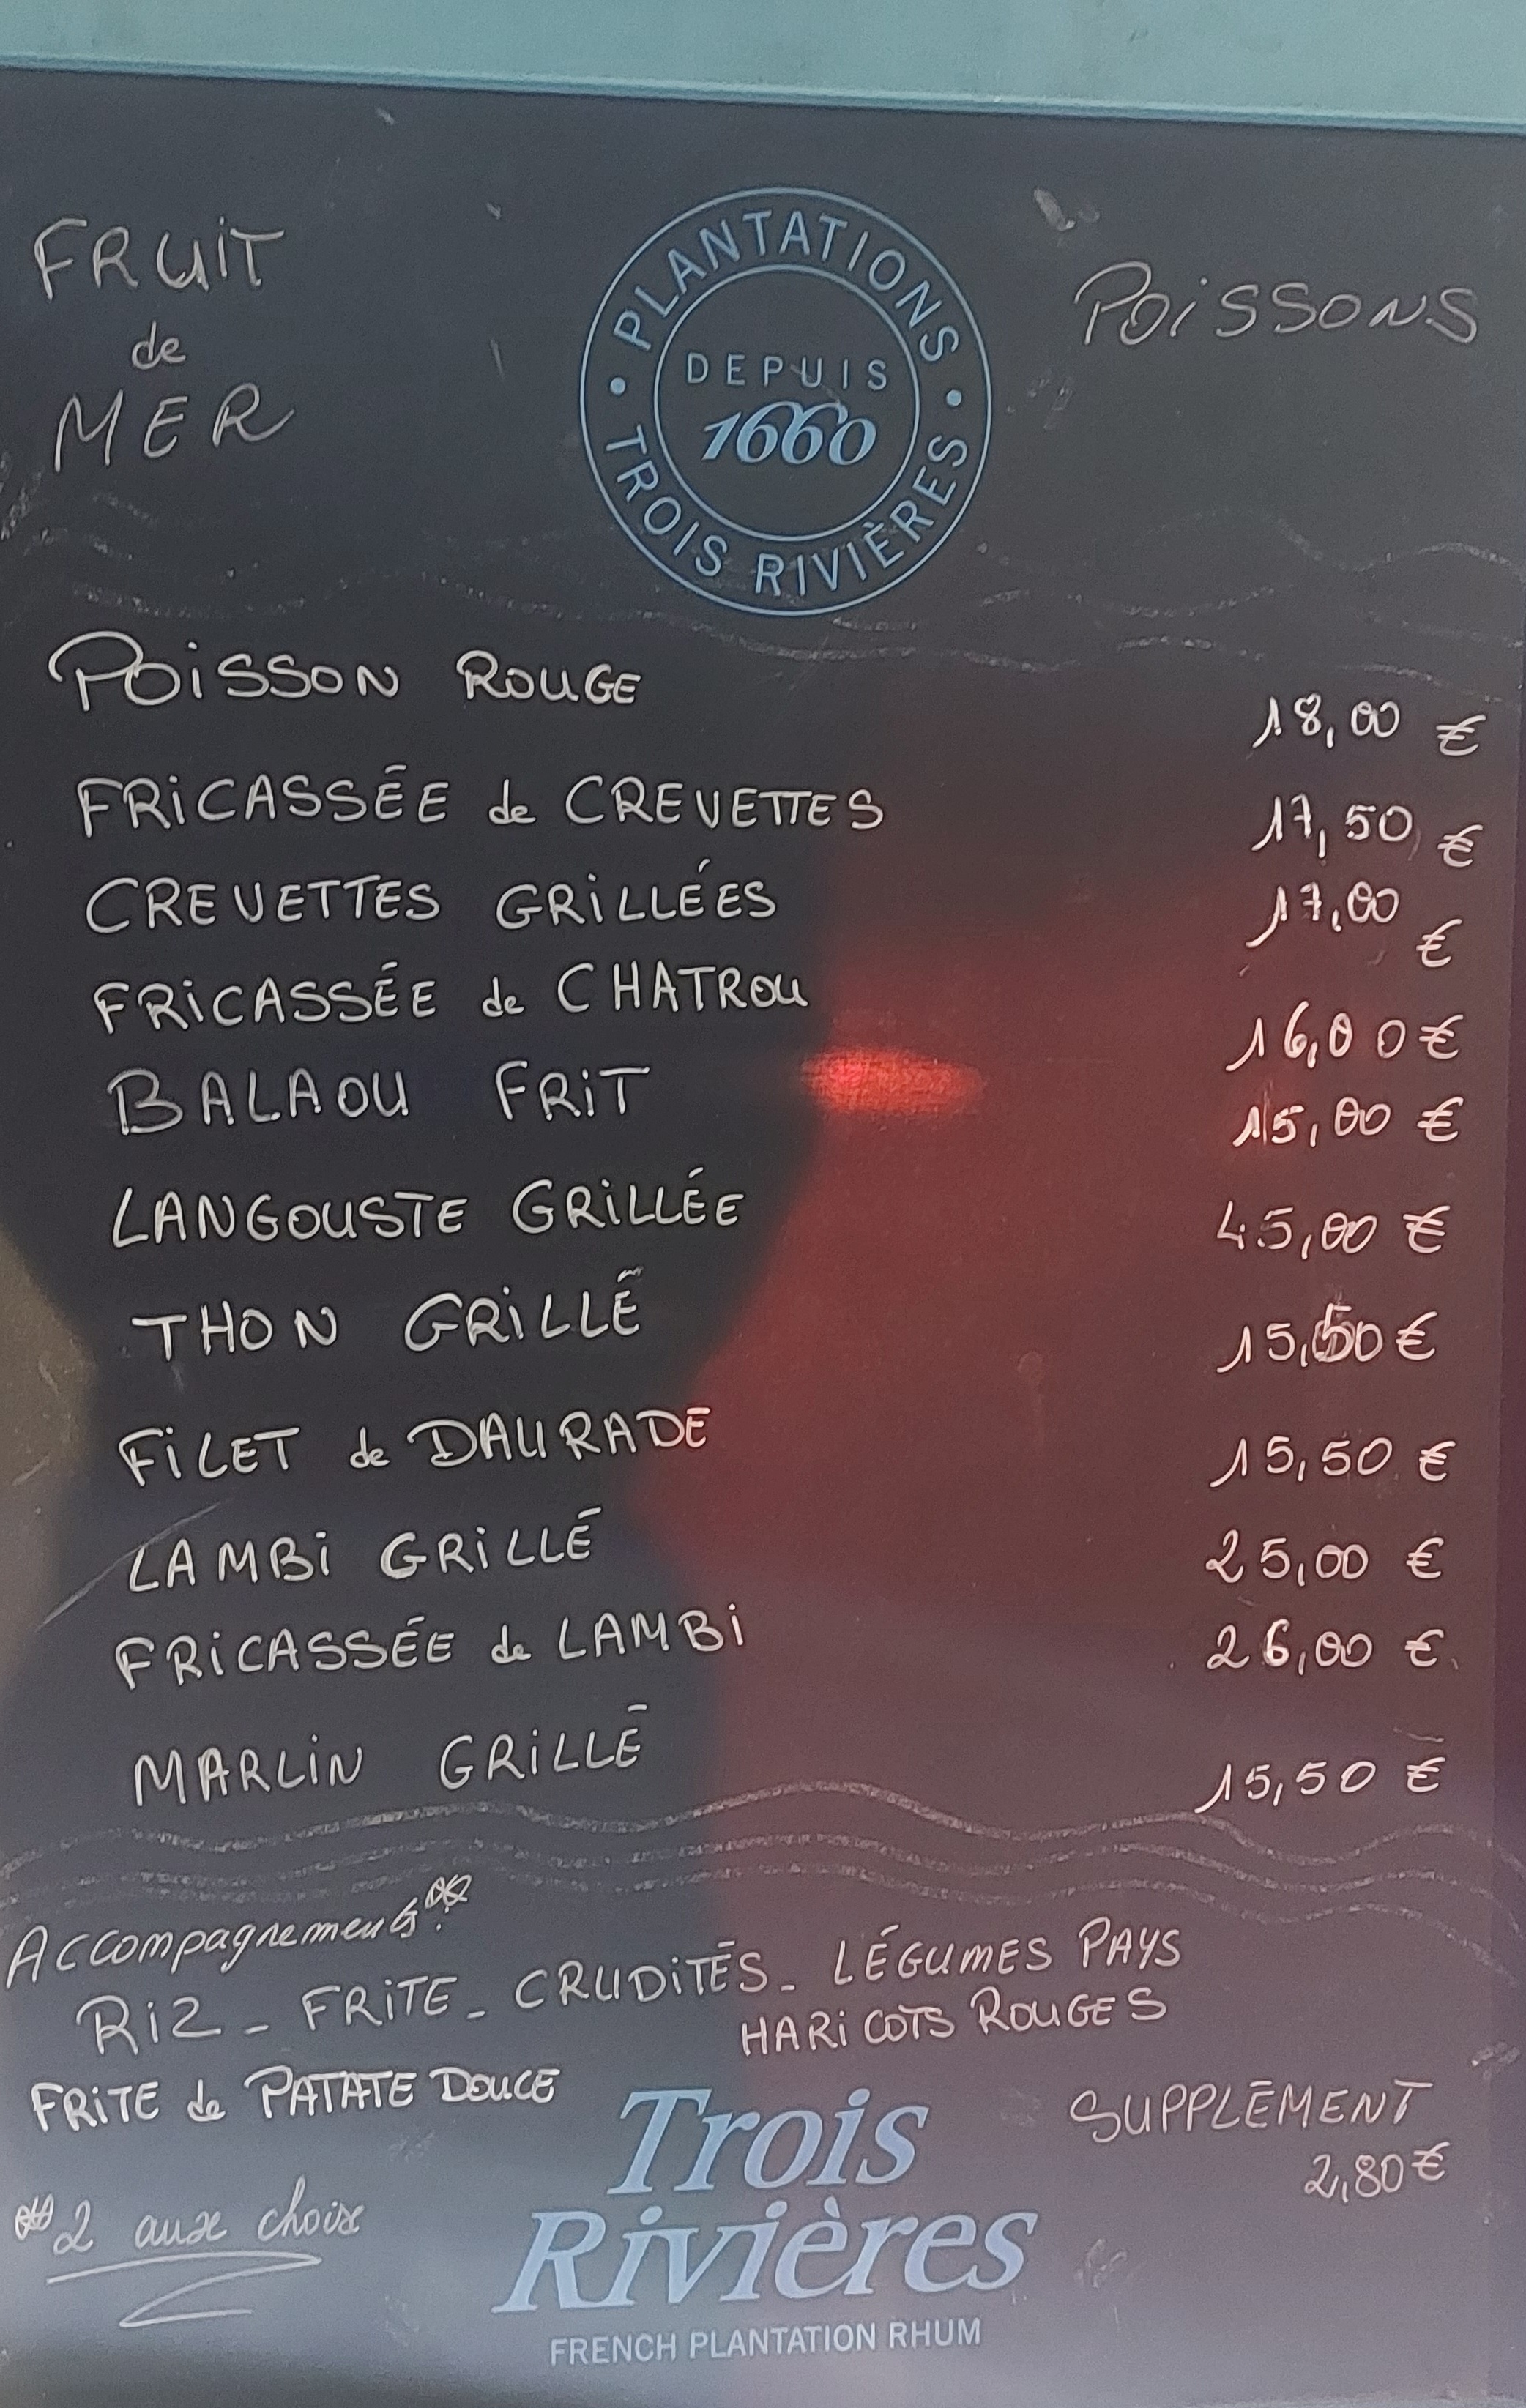 FRUIT
de
MER
PLANTATIONS
DEPUIS
1660
TROIS RIVIÈRES
POISSONS
POISSON ROUGE 18,00 €
FRICASSÉE de CREVETTES 17,50 €
CREVETTES GRILLÉES 17,00 €
FRICASSÉE de CHATROU 16,00 €
BALAOU FRIT 15,00 €
LANGOUSTE GRILLÉE 45,00 €
THON GRILLÉ 15,50 €
FILET de DAURADE 15,50 €
LAMBI GRILLÉ 25,00 €
FRICASSÉE de LAMBI 26,00 €
MARLIN GRILLÉ 15,50 €
Accompagnements
RIZ - FRITE - CRUDITÉS - LÉGUMES PAYS
HARICOTS ROUGES
FRITE de PATATE DOUCE
SUPPLÉMENT
2,80 €
2 aux choix
Trois
Rivières
FRENCH PLANTATION RHUM